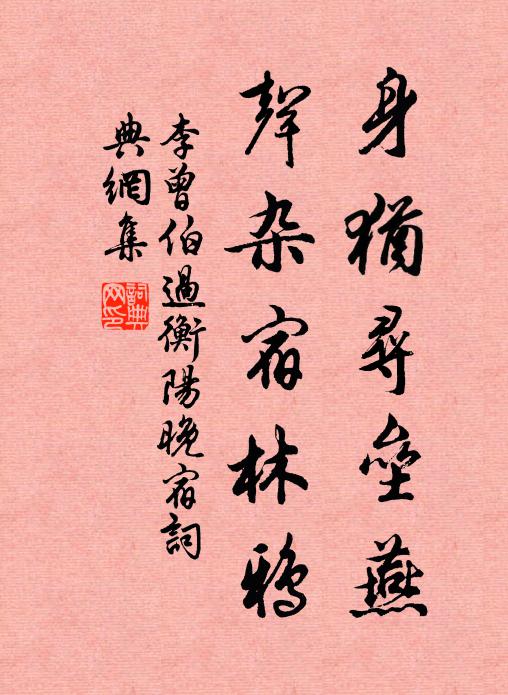 身猶尋壘燕
聲杂宿林鴉
李曾伯過衡陽晚宿詞
典網集
詞典网印